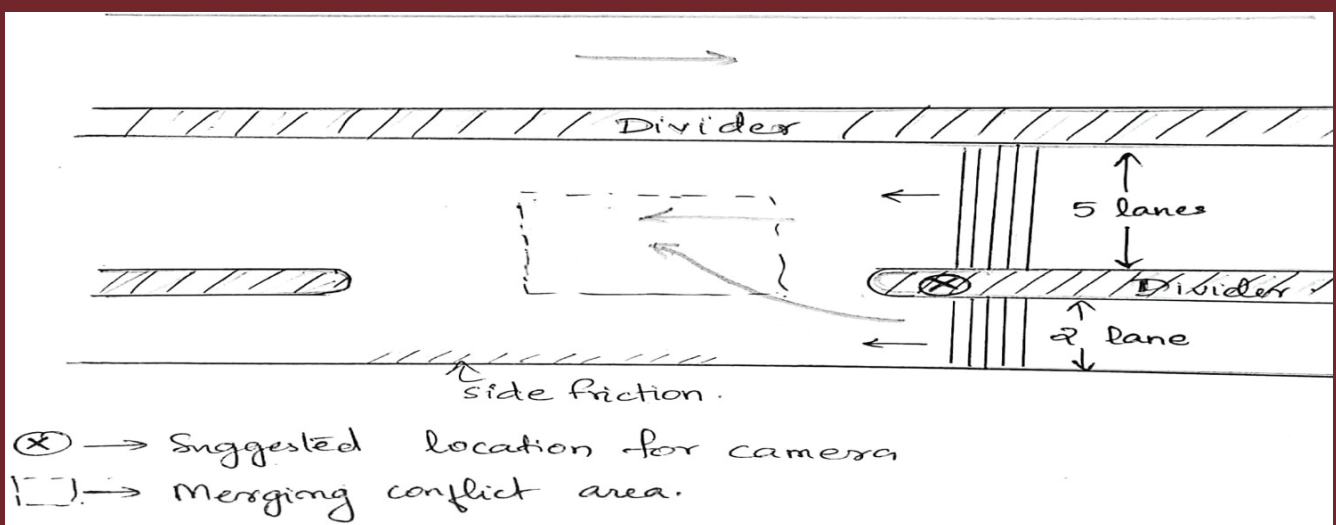 Divider
5 lanes
Divider
2 lane
side friction.
Ⓧ → Suggested location for camera
→ Merging conflict area.